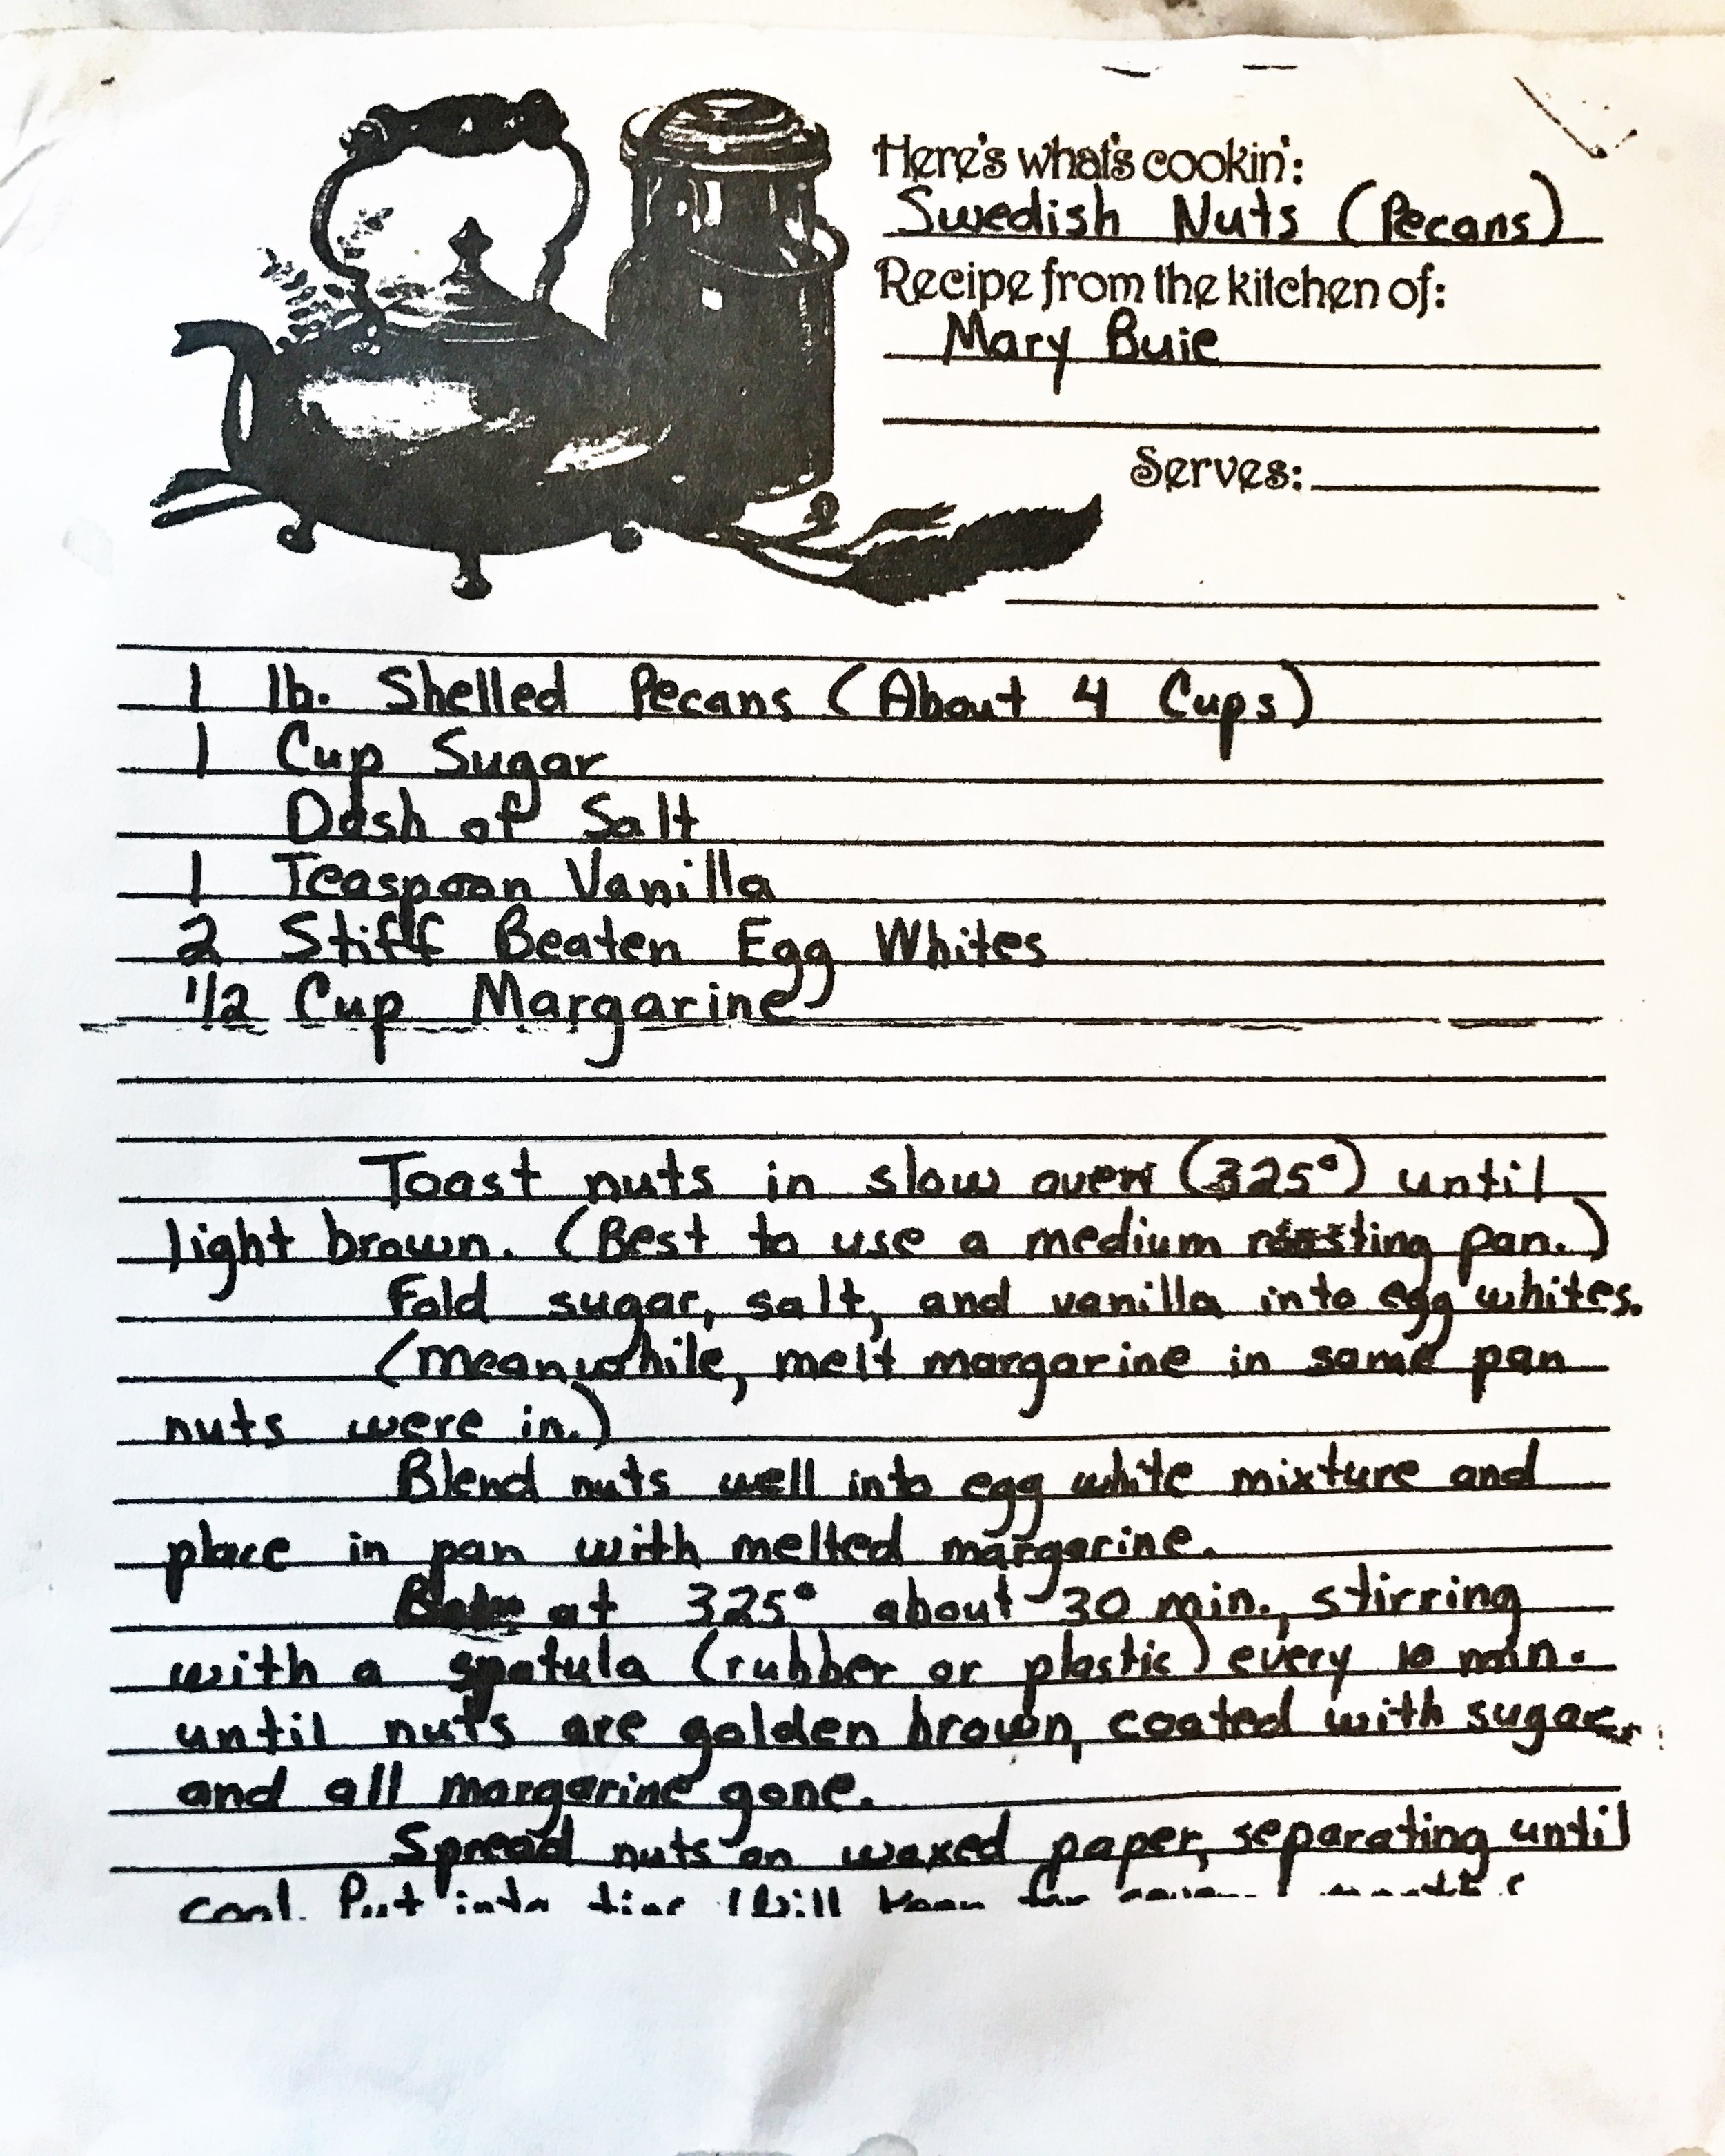 Here's what's cookin':
Swedish Nuts (Pecans)
Recipe from the kitchen of:
Mary Buie
Serves:
1 lb. Shelled Pecans (About 4 Cups)
1 Cup Sugar
Dash of Salt
1 Teaspoon Vanilla
2 Stiff Beaten Egg Whites
1/2 Cup Margarine
Toast nuts in slow oven (325°) until
light brown. (Best to use a medium roasting pan.)
Fold sugar, salt, and vanilla into egg whites.
(Meanwhile, melt margarine in same pan
nuts were in.)
Blend nuts well into egg white mixture and
place in pan with melted margarine.
Bake at 325° about 30 min., stirring
with a spatula (rubber or plastic) every 10 min.
until nuts are golden brown, coated with sugar,
and all margarine gone.
Spread nuts on waxed paper, separating until
cool. Put into tins Will keep for